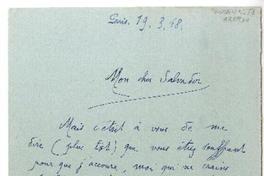 Paris. 19. 3. 48.
Mon cher Salvador
Mais c'était à vous de me
dire (plus tôt) que vous étiez souffrant
pour que j'accoure, moi qui ne crains